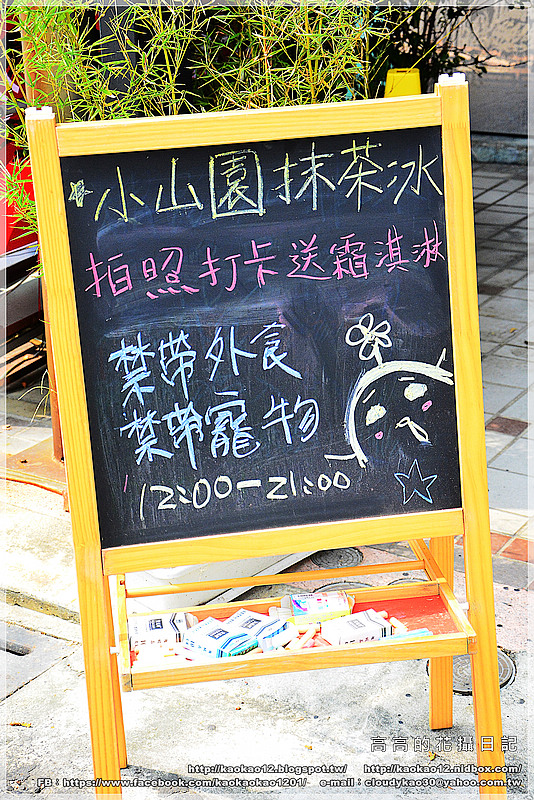 小山園抹茶冰
拍照打卡送霜淇淋
禁帶外食
禁帶寵物
12:00-21:00
高高的花攝日記
http://kaokao12.blogspot.tw/ http://kaokao12.nidbox.com/
FB:https://www.facebook.com/kaokaokao1201/ e-mail:cloudykao30@yahoo.com.tw